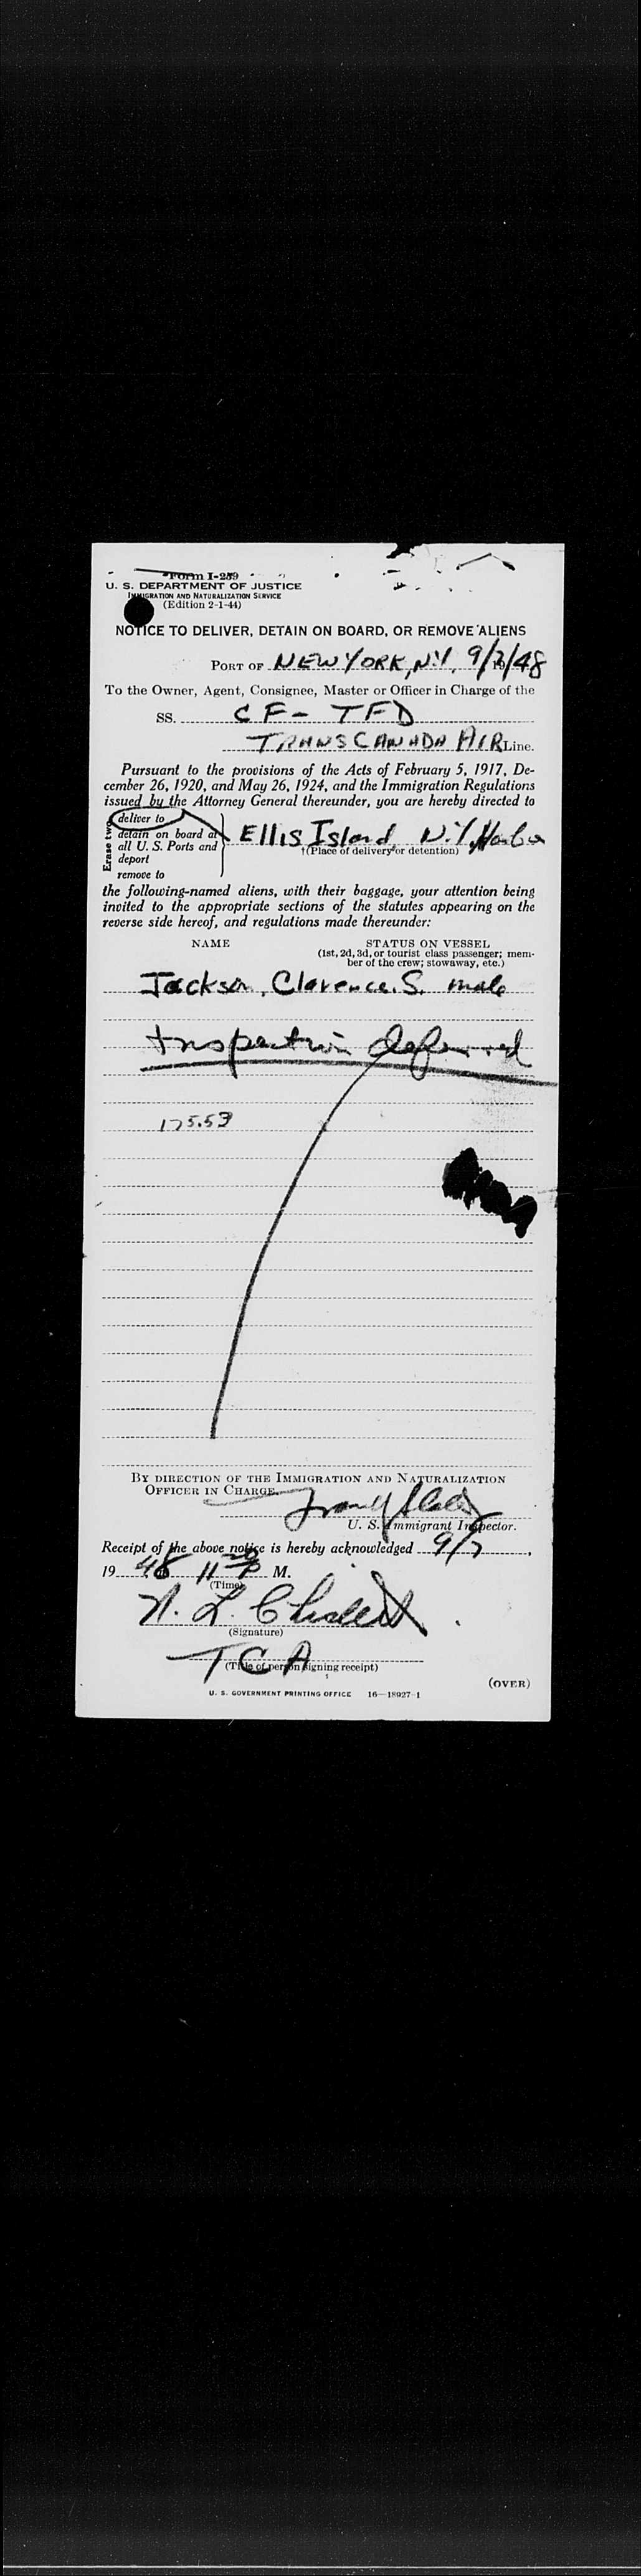 Form I-259
U. S. DEPARTMENT OF JUSTICE
IMMIGRATION AND NATURALIZATION SERVICE
(Edition 2-1-44)
NOTICE TO DELIVER, DETAIN ON BOARD, OR REMOVE ALIENS
PORT OF NEW YORK, N.Y. 9/7/48
To the Owner, Agent, Consignee, Master or Officer in Charge of the
SS. CF-TFD
TRANSCANADA AIR Line.
Pursuant to the provisions of the Acts of February 5, 1917, De-
cember 26, 1920, and May 26, 1924, and the Immigration Regulations
issued by the Attorney General thereunder, you are hereby directed to
Erase two
deliver to
detain on board at
all U. S. Ports and
deport
remove to
Ellis Island, N.Y. Harbor
†(Place of delivery or detention)
the following-named aliens, with their baggage, your attention being
invited to the appropriate sections of the statutes appearing on the
reverse side hereof, and regulations made thereunder:
NAME STATUS ON VESSEL
(1st, 2d, 3d, or tourist class passenger; mem-
ber of the crew; stowaway, etc.)
Jackson, Clarence. S. male
Inspection deferred
175.53
BY DIRECTION OF THE IMMIGRATION AND NATURALIZATION
OFFICER IN CHARGE
U. S. Immigrant Inspector.
Receipt of the above notice is hereby acknowledged 9/7,
19 48 11 M.
(Time)
(Signature)
TCA
(Title of person signing receipt)
(OVER)
U. S. GOVERNMENT PRINTING OFFICE 16—18927-1